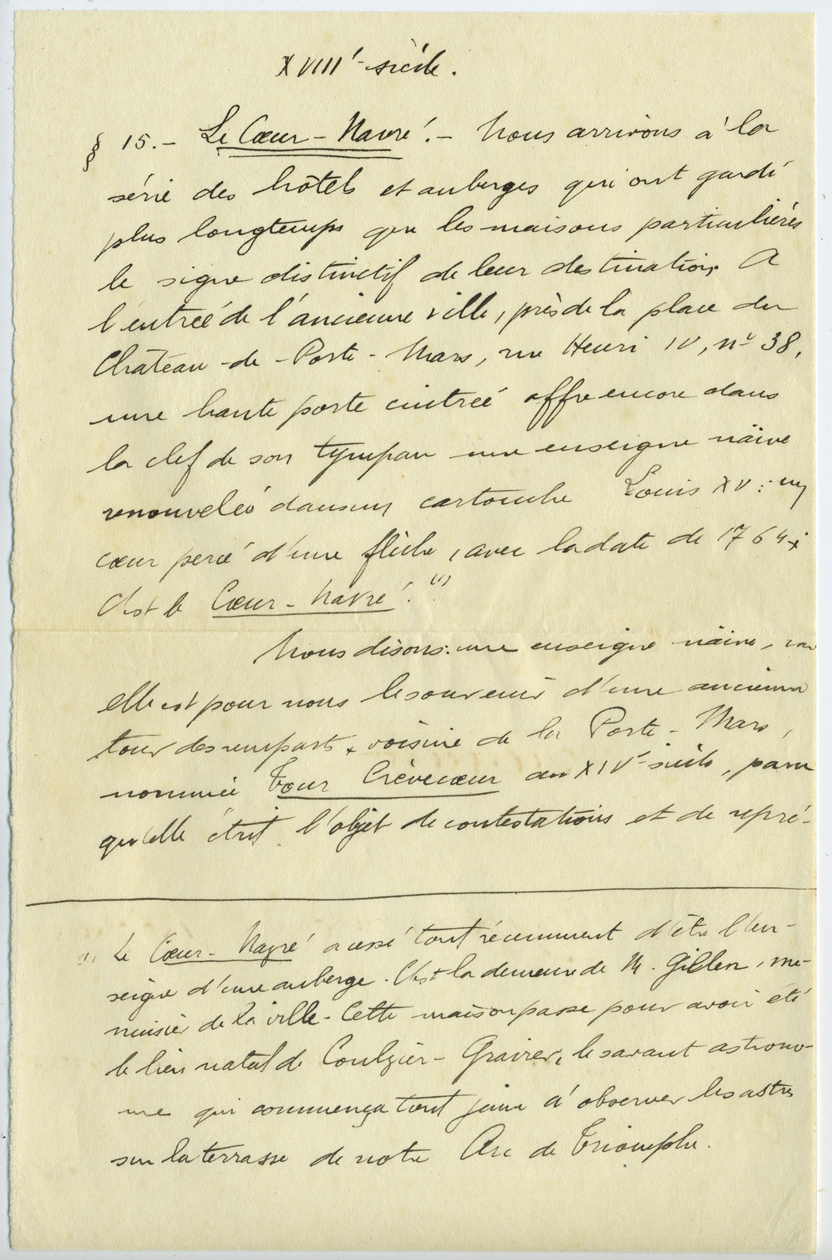 XVIIIe siècle.
§ 15.- Le Cœur-Navré.- Nous arrivons à la
série des hôtels et auberges qui ont gardé
plus longtemps que les maisons particulières
le signe distinctif de leur destination. A
l'entrée de l'ancienne ville, près de la place du
Château-de-Porte-Mars, rue Henri IV, n° 38,
une haute porte cintrée offre encore dans
la clef de son tympan une enseigne naïve
renouvelée dans un cartouche Louis XV : un
cœur percé d'une flèche, avec la date de 1764 ;
C'est le Cœur-Navré. (1)
Nous disons : une enseigne naïve, car
elle est pour nous le souvenir d'une ancienne
tour des remparts, voisine de la Porte-Mars,
nommée Tour Crèvecœur au XIVe siècle, parce
qu'elle était l'objet de contestations et de repré-
(1) Le Cœur-Navré a cessé tout récemment d'être l'en-
seigne d'une auberge. C'est la demeure de M. Gillen, me-
nuisier de la ville. Cette maison passe pour avoir été
le lieu natal de Coulvier-Gravier, le savant astrono-
me qui commença tout jeune à observer les astres
sur la terrasse de notre Arc de Triomphe.